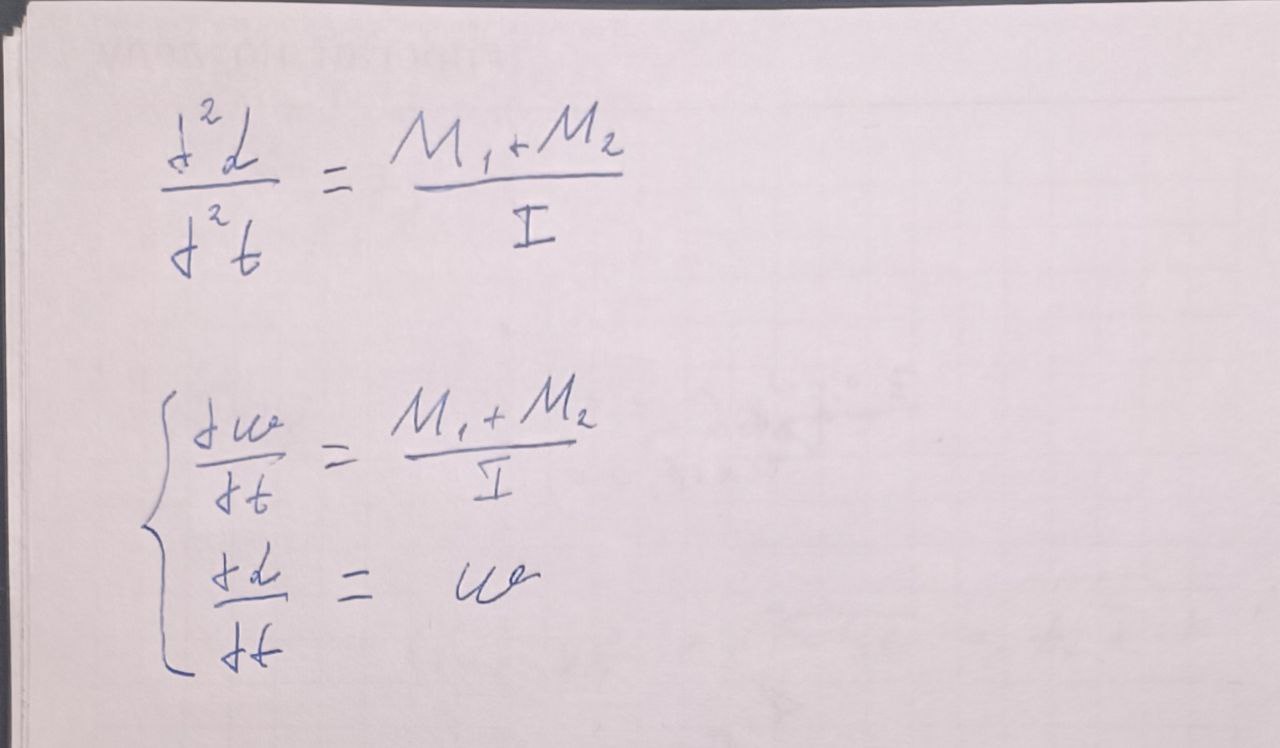 d²α / d²t = (M₁ + M₂) / I
dω / dt = (M₁ + M₂) / I
dα / dt = ω